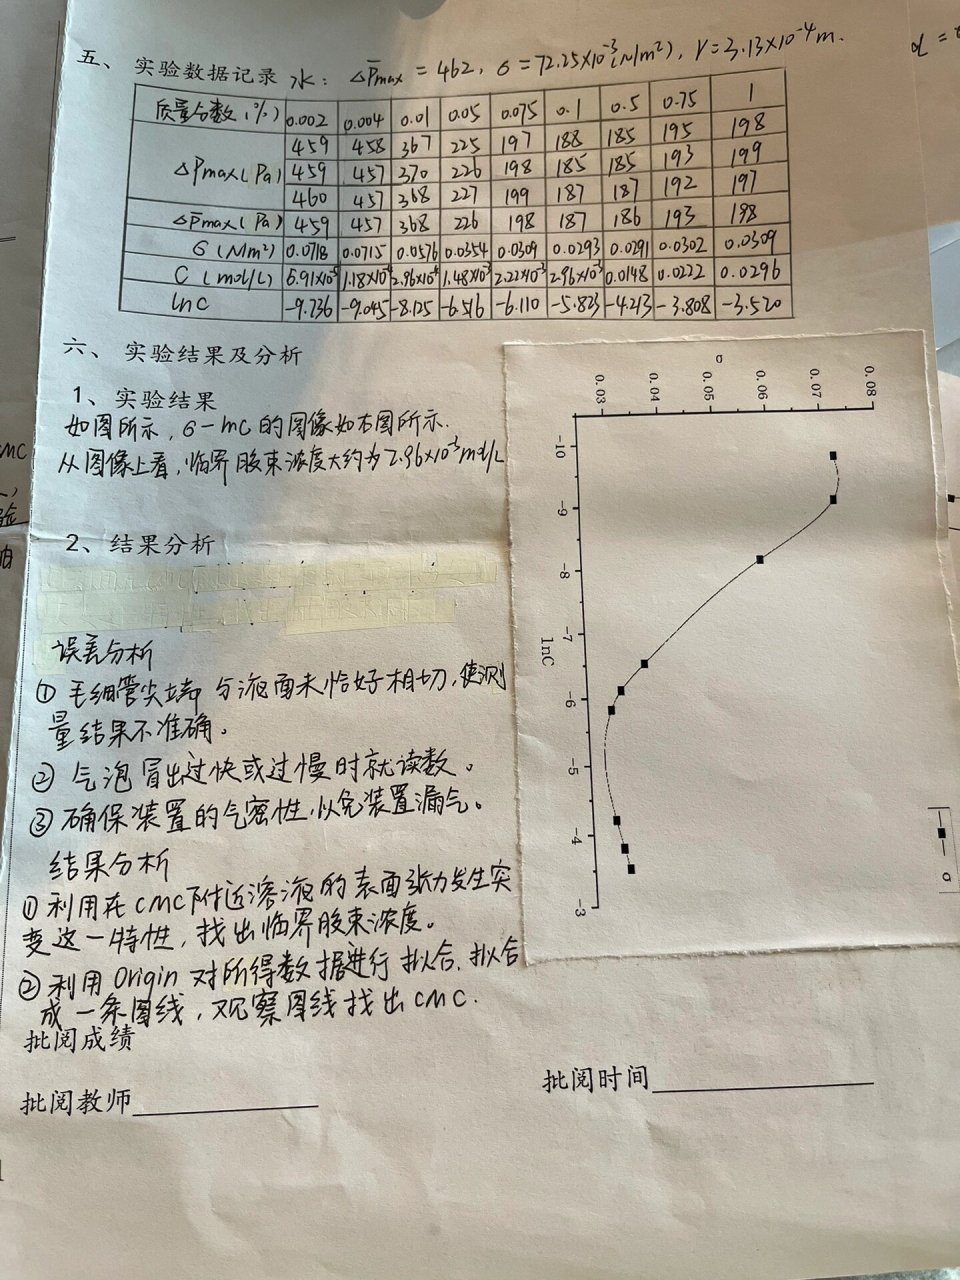 五、实验数据记录 水: ΔP̄max = 462, σ = 72.25×10⁻³(N/m²), r = 3.13×10⁻⁴m.
质量分数(%) 0.002 0.004 0.01 0.05 0.075 0.1 0.5 0.75 1
459 458 367 225 197 188 185 195 198
ΔPmax(Pa) 459 457 370 226 198 185 185 193 199
460 457 368 227 199 187 187 192 197
ΔP̄max(Pa) 459 457 368 226 198 187 186 193 198
σ(N/m²) 0.0718 0.0715 0.0576 0.0354 0.0309 0.0293 0.0291 0.0302 0.0309
C(mol/L) 5.91×10⁻⁵ 1.18×10⁻⁴ 2.96×10⁻⁴ 1.48×10⁻³ 2.22×10⁻³ 2.96×10⁻³ 0.0148 0.0222 0.0296
lnC -9.736 -9.045 -8.125 -6.516 -6.110 -5.823 -4.213 -3.808 -3.520
六、实验结果及分析
1、实验结果
如图所示,σ-lnC的图像如右图所示.
从图像上看,临界胶束浓度大约为2.96×10⁻³mol/L
2、结果分析
误差分析
①毛细管尖端与液面未恰好相切,使测
量结果不准确。
②气泡冒出过快或过慢时就读数。
③确保装置的气密性,以免装置漏气。
结果分析
①利用在CMC附近溶液的表面张力发生突
变这一特性,找出临界胶束浓度。
②利用Origin对所得数据进行拟合,拟合
成一条图线,观察图线找出CMC.
批阅成绩
批阅教师
批阅时间
σ
0.03 0.04 0.05 0.06 0.07 0.08
-10 -9 -8 -7 -6 -5 -4 -3
lnC
σ
α =
CMC
验